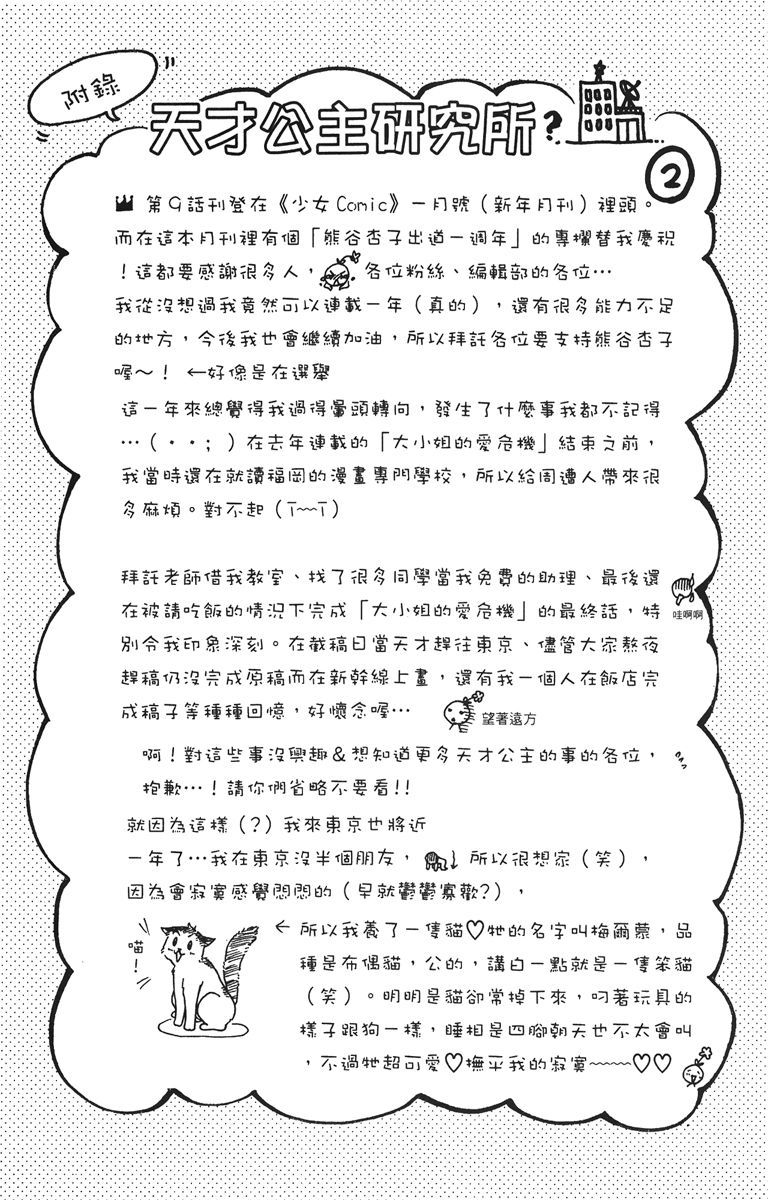 附錄
天才公主研究所?
2
第9話刊登在《少女Comic》一月號（新年月刊）裡頭。
而在這本月刊裡有個「熊谷杏子出道一週年」的專欄替我慶祝
！這都要感謝很多人，各位粉絲、編輯部的各位…
我從沒想過我竟然可以連載一年（真的），還有很多能力不足
的地方，今後我也會繼續加油，所以拜託各位要支持熊谷杏子
喔～！ ←好像是在選舉
這一年來總覺得我過得暈頭轉向，發生了什麼事我都不記得
…（・・；）在去年連載的「大小姐的愛危機」結束之前，
我當時還在就讀福岡的漫畫專門學校，所以給周遭人帶來很
多麻煩。對不起（T~~T）
拜託老師借我教室、找了很多同學當我免費的助理、最後還
在被請吃飯的情況下完成「大小姐的愛危機」的最終話，特
哇啊啊
別令我印象深刻。在截稿日當天才趕往東京、儘管大家熬夜
趕稿仍沒完成原稿而在新幹線上畫，還有我一個人在飯店完
成稿子等種種回憶，好懷念喔…
望著遠方
啊！對這些事沒興趣＆想知道更多天才公主的事的各位，
抱歉…！請你們省略不要看!!
就因為這樣（?）我來東京也將近
一年了…我在東京沒半個朋友，↓所以很想家（笑），
因為會寂寞感覺悶悶的（早就鬱鬱寡歡?），
喵！
← 所以我養了一隻貓♡牠的名字叫梅爾蒙，品
種是布偶貓，公的，講白一點就是一隻笨貓
（笑）。明明是貓卻常掉下來，叼著玩具的
樣子跟狗一樣，睡相是四腳朝天也不太會叫
，不過牠超可愛♡撫平我的寂寞~~~~♡♡